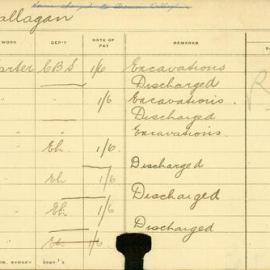 allagan
WORK DEP'T DATE OF PAY REMARKS
arter CBS 1/6 Excavations
Discharged
" " 1/6 Excavations.
" " Discharged
" " Excavations
" Eh 1/6
Discharged
" Eh 1/6
Discharged
" Eh 1/6
Discharged
" Eh 1/6